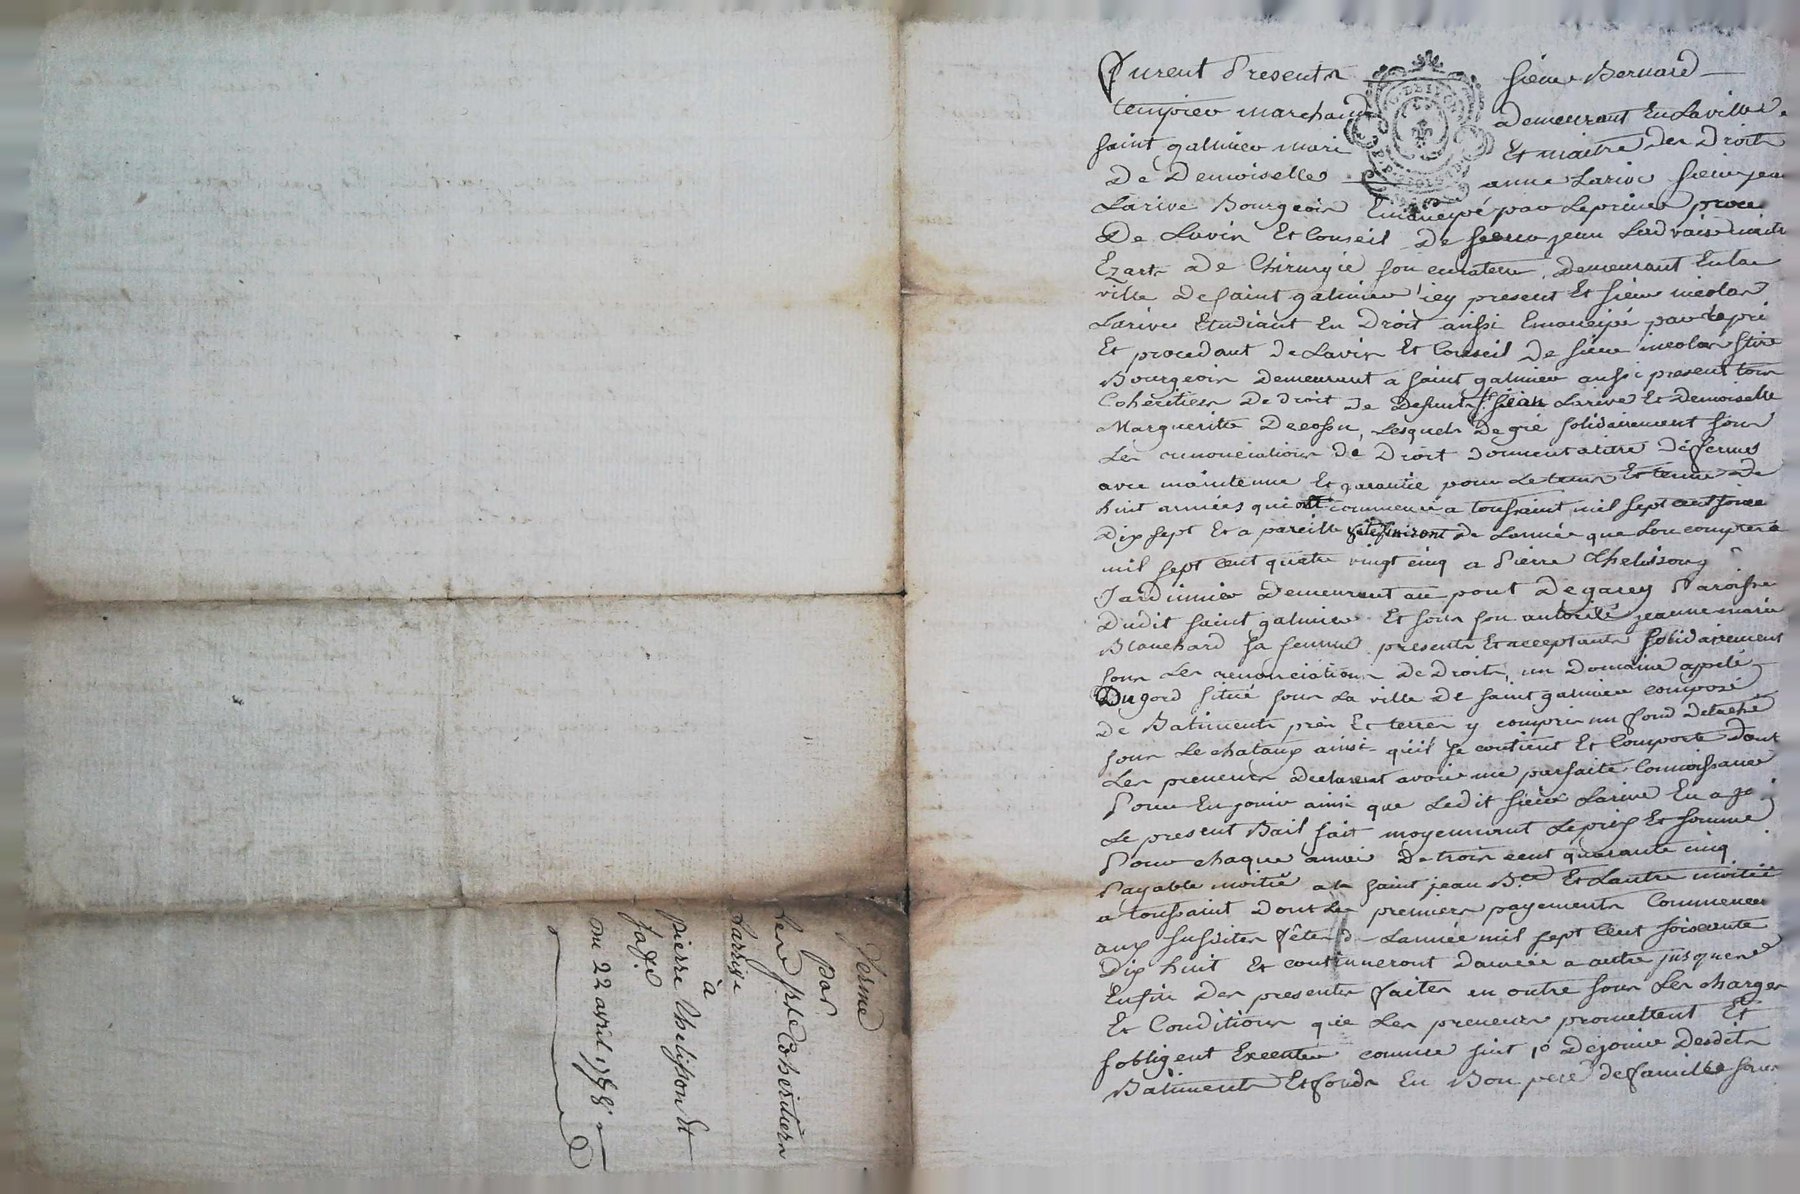 furent Presents Sieur Bernard
tempier marchand demeurant En La ville de
saint galmier mari Et maitre des Droits
De Demoiselle anne Larive Sieur jean
Larive Bourgeois Emancipé par Le prince proce
De Lavis Et Conseil De sieur jean
Ezarts de Chirurgie son curateur, Demeurant En la
ville de saint galmier icy present Et sieur nicolas
Larive Etudiant En Droit aussi Emancipé par Le pri
Et procedant de Lavis Et Conseil de sieur nicolas
Bourgeois demeurant a saint galmier aussi present tous
Cohéritiers De droit de Defunts Sr. jean Larive Et Demoiselle
Margueritte Decossu, Lesquels De gré solidairement sous
Les renonciations de Droit donnent a titre de ferme
avec maintenue Et garantie pour Le tems Et terme De
huit années qui ont commencé a toussaint mil sept cent soixe
Dix sept Et a pareille fete finiront de Lannée que Lon comptera
mil sept cent quatre vingt cinq a Pierre Thelisson
Jardinier Demeurant au pont De garey Paroisse
Dudit saint galmier Et sous son autorité jeanne marie
Blanchard sa femme presents Et acceptants solidairement
sous Les renonciations De Droits, un Domaine appelé
Du gord situé sous La ville de saint galmier composé
De Batiments prés Et terres y compris un fond detaché
sous Le chataux ainsi qu'il se contient Et Comporte Dont
Les preneurs declarent avoir une parfaite Connoissance
Pour En jouir ainsi que Ledit sieur Larive En a jo
Le present Bail fait moyennant Le prix Et somme
Pour chaque année de trois cent quarante cinq
Payable moitié a la saint jean Bte Et Lautre moitié
a toussaint Dont Les premiers payements Commencer
aux susdites fêtes de Lannée mil sept cent soixante
Dix huit Et continueront Dannée a autre jusquen
Enfin Des presentes faites en outre sous Les charges
Et Conditions que Les preneurs promettent Et
sobligent Executer comme suit 1° De jouir Desdits
Batiments Et fonds En Bon pere de famille sans
ferme
par
Les Cohéritiers
Larrive
à
pierre Thelisson Et
sa fe
du 22 avril 1778